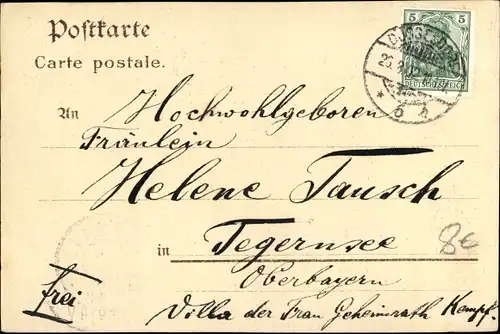 Postkarte
Carte postale.
5 5
DEUTSCHES REICH
An Hochwohlgeboren
Fräulein
Helene Tausch
in Tegernsee
8e
Oberbayern
frei
Villa der Frau Geheimrath Kempf